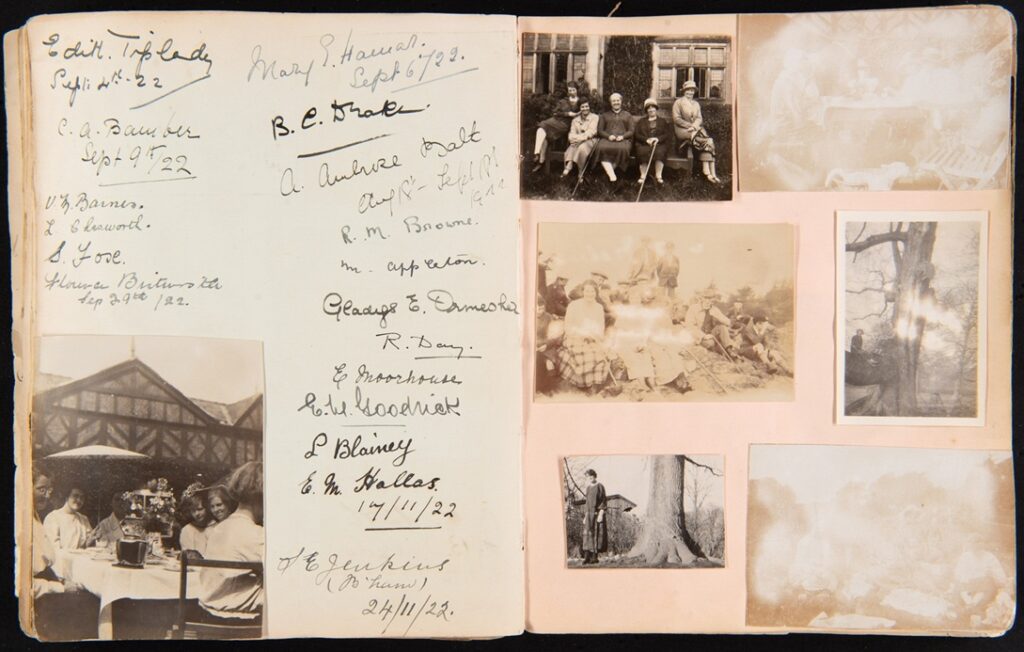 Edith Tiplady
Sept: 4th - 22
C. A. Bamber
Sept 9th/22
Barnes.
S. Foxe.
Florence
Sep 29th /22.
Mary E. Hamar.
Sept 6th/22.
B. C. Drake.
A. Ambrose Malt
Aug 18th - Sept
1922
R. M. Browne.
M. Appleton.
Gladys E. Ormesher
R. Day.
E Moorhouse
Goodrick
L Blainey
E. M. Hallas.
17/11/22
Jenkins
(B'ham)
24/11/22.